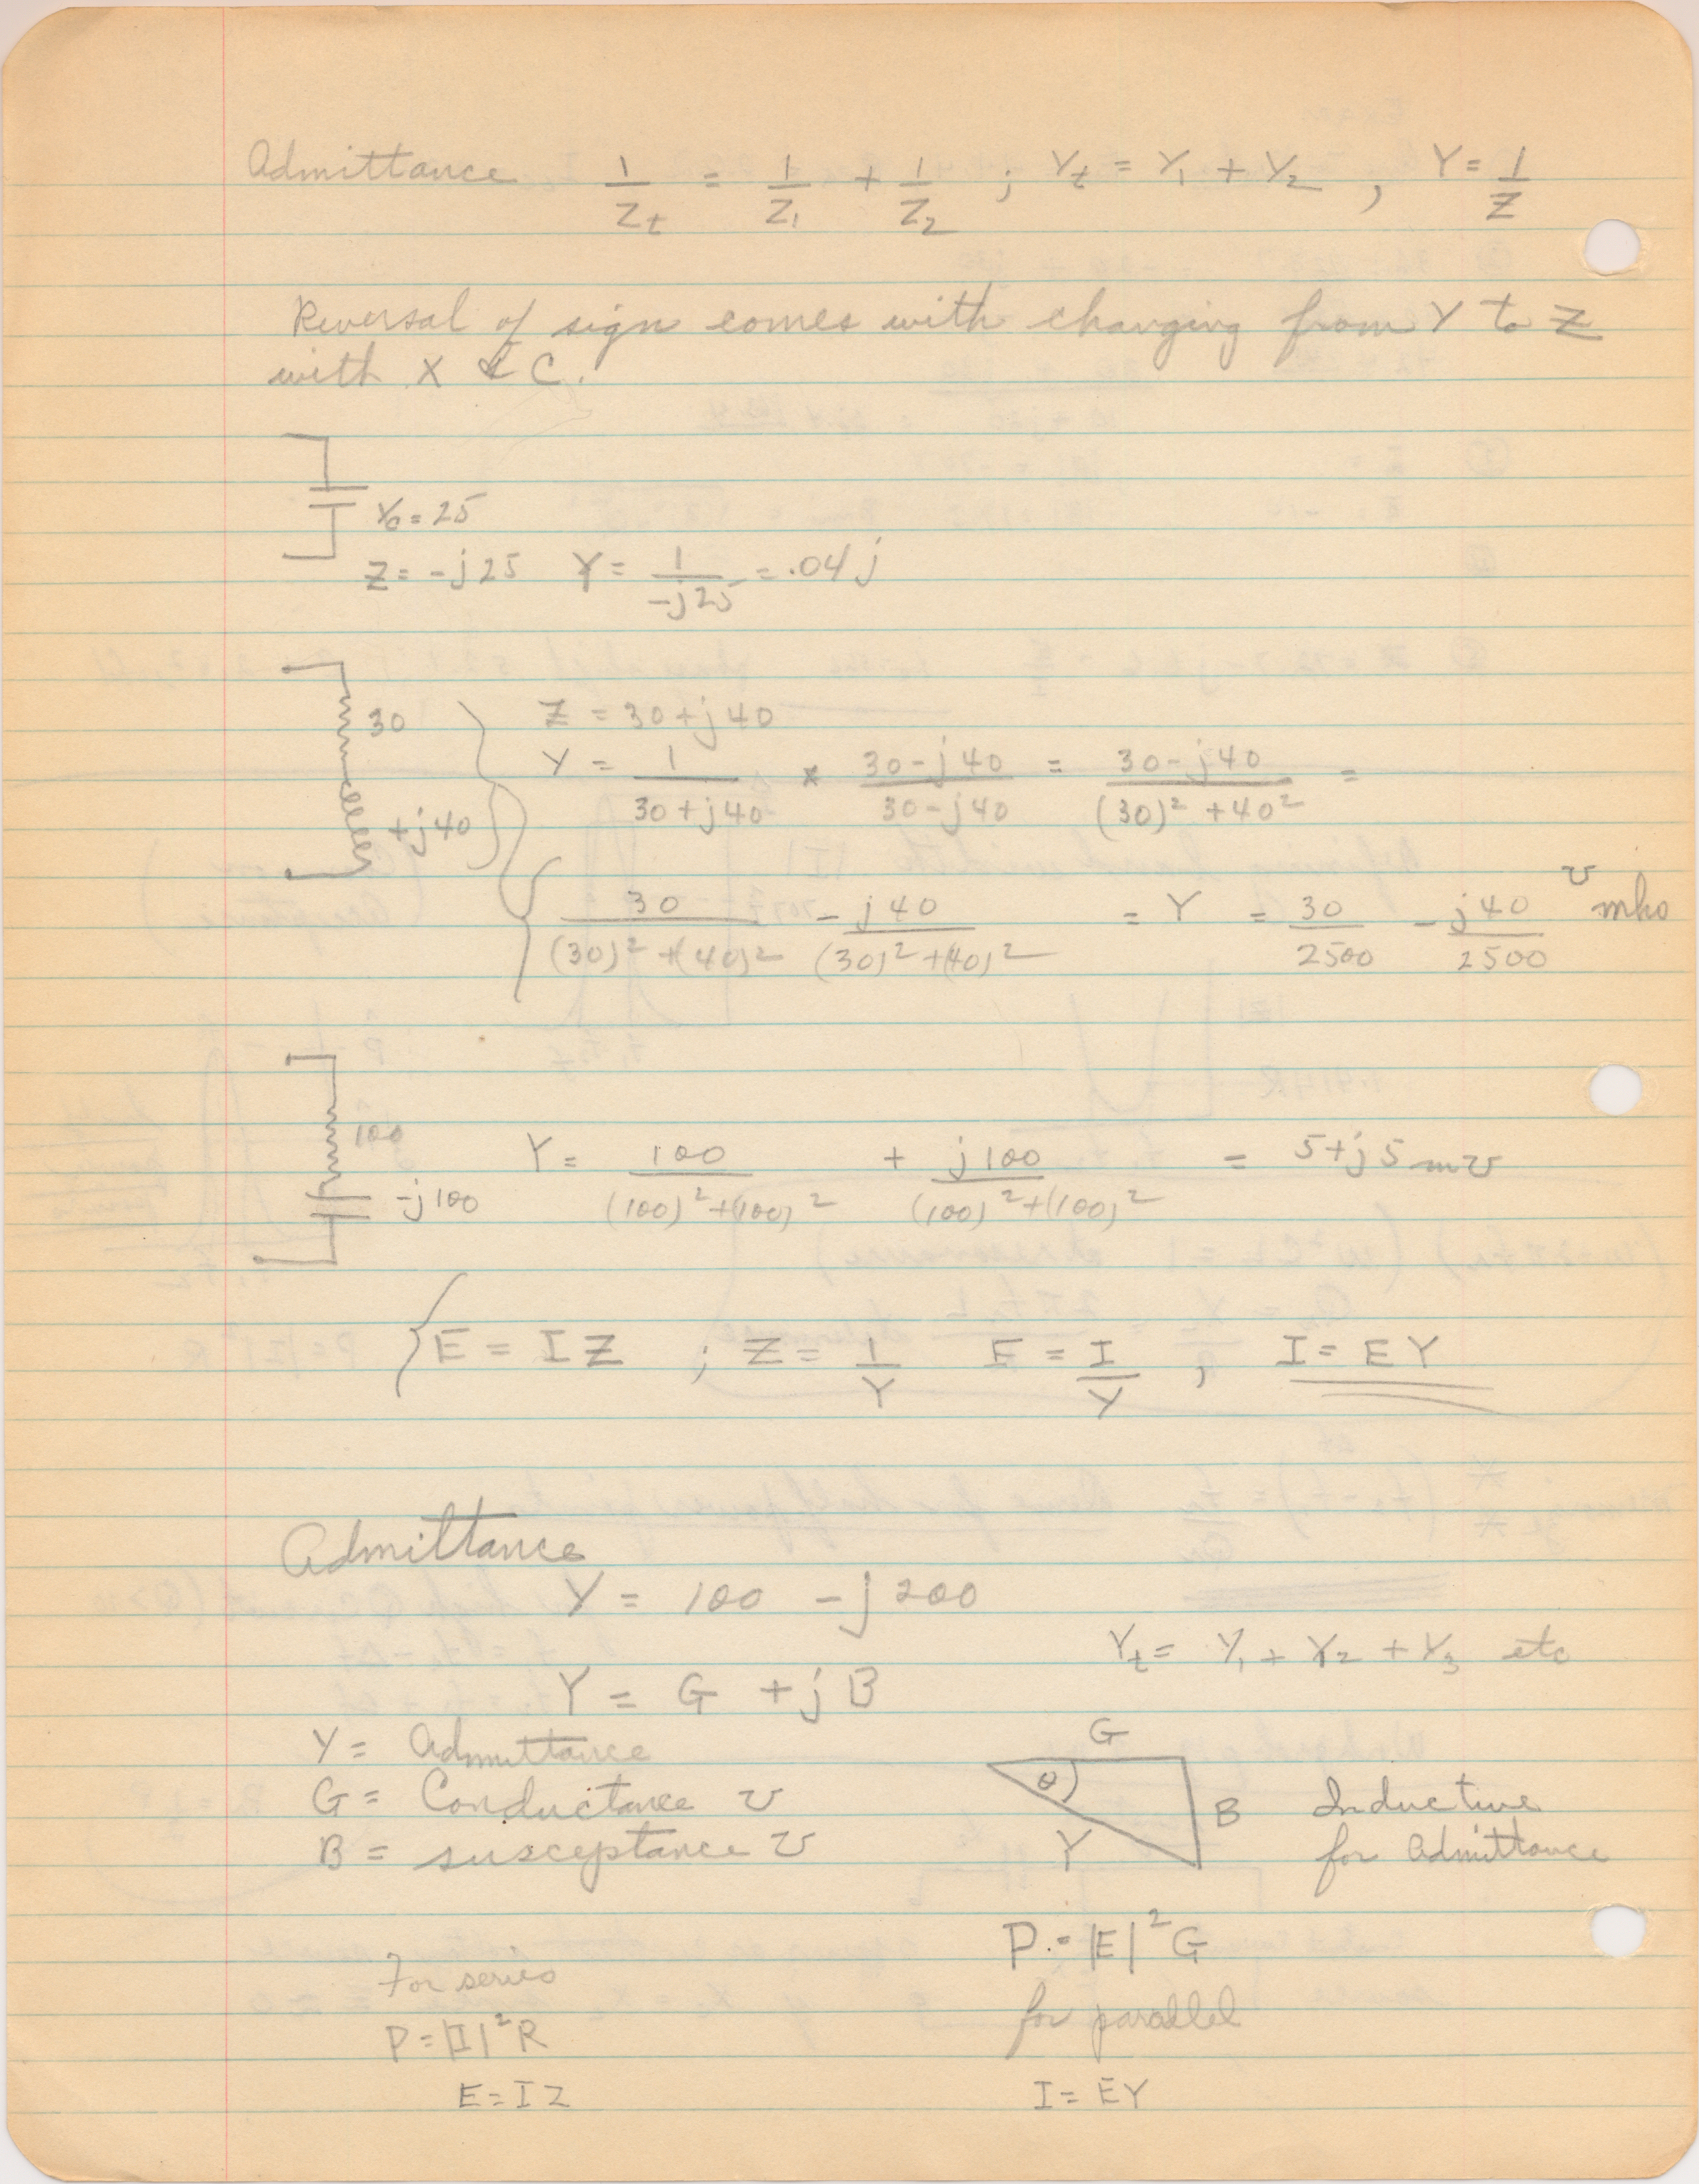 Admittance 1/Zt = 1/Z1 + 1/Z2 ; Yt = Y1 + Y2 , Y = 1/Z
Reversal of sign comes with changing from Y to Z
with X & C.
Xc = 25
Z = -j25 Y = 1/-j25 = .04j
30
+j40
Z = 30+j40
Y = 1/30+j40 × 30-j40/30-j40 = 30-j40/(30)² +40² =
30/(30)²+(40)² - j40/(30)²+(40)² = Y = 30/2500 - j40/2500 ʊ mho
100
-j100
Y = 100/(100)²+(100)² + j100/(100)²+(100)² = 5+j5 mʊ
E = IZ ; Z = 1/Y E = I/Y , I = EY
Admittance
Y = 100 - j200
Yt = Y1 + Y2 + Y3 etc
Y = G + jB
Y = Admittance
G = Conductance ʊ
B = susceptance ʊ
G
θ
B
Y
Inductive
for Admittance
For series
P = |I|²R
E = IZ
P = |E|²G
for parallel
I = EY